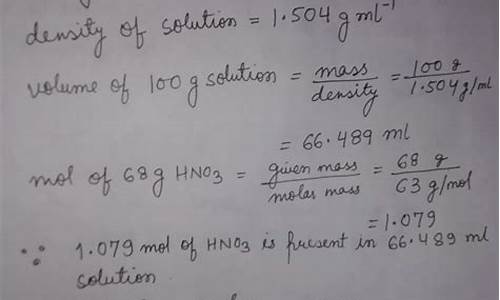 density of solution = 1.504 g ml⁻¹
volume of 100 g solution = mass/density = 100 g/1.504 g/ml
= 66.489 ml
mol of 68 g HNO3 = given mass/molar mass = 68 g/63 g/mol
= 1.079
∵ 1.079 mol of HNO3 is present in 66.489 ml
solution